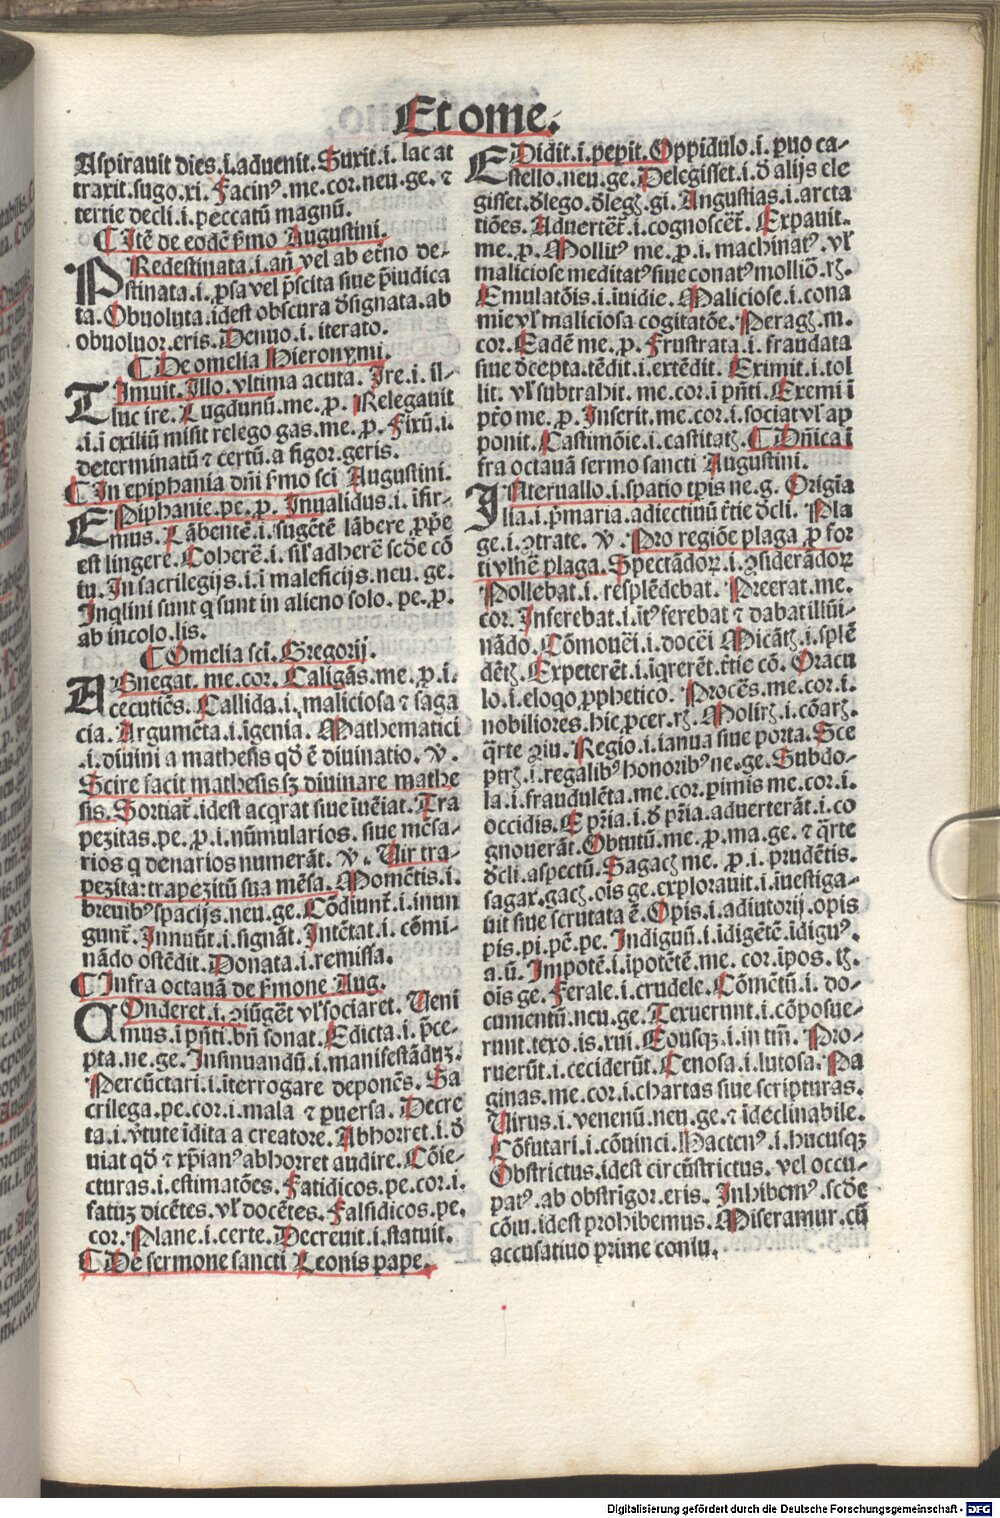 Et ome.
Aspirauit dies.i.aduenit. Suxit.i. lac at
traxit.sugo.xi. Facinꝰ.me.cor.neu.ge. ⁊
tertie decli.i.peccatū magnū.
¶ Itē de eodē ẜmo Augustini.
PRedestinata.i.an̄ vel ab etno de-
stinata.i.p̱sa vel p̄scita siue p̄iudica
ta. Obuoluta.idest obscura ꝺsignata.ab
obuoluor.eris. Denuo.i.iterato.
¶ De omelia Hieronymi.
TImuit. Illo. vltima acuta. Ire.i. il-
luc ire. Lugdunū.me.p̱. Releganit
.i.ī exiliū misit relego gas.me.p̱. Fixū.i.
determinatū ⁊ certū.a figor.geris.
¶ In epiphania dn̄i ẜmo sci Augustini.
EPiphanie.pe.p̱. Inualidus.i.īfir-
mus. Lābentē.i.sugētē lābere p̱p̄e
est lingere. Coherē.i.sil̕ adherē scd̄e cō
iu. In sacrilegijs.i.ī maleficijs.neu.ge.
Inqlini sunt q sunt in alieno solo.pe.p̱.
ab incolo.lis.
¶ Omelia sci. Gregorij.
ABnegat.me.cor. Caligās.me.p̱.i.
cecutiēs. Callida.i.maliciosa ⁊ saga
cia. Argumēta.i.īgenia. Mathematici
.i.diuini a mathesis qd̄ ē diuinatio. v̄.
Scire facit mathesis sꝫ diuinare mathe
sis. Sortiat̄.idest acqrat siue īuēiat. Tra
pezitas.pe.p̱.i.nūmularios.siue mēsa-
rios q denarios numerāt. v̄. Uir tra-
pezita:trapezitū sua mēsa. Momētis.i.
breuibꝰ spacijs.neu.ge. Cōdiunt̄.i.inun
gunt̄. Innuūt.i.signāt. Intētat.i.cōmi-
nādo ostēdit. Donata.i.remissa.
¶ Infra octauā de ẜmone Aug.
COnderet.i.ꝯiūgēt vl̕ sociaret. Ueni
mus.i.pn̄ti.bn̄ sonat. Edicta.i.p̄ce-
pta.ne.ge. Insinuandū.i.manifestāduꝫ.
Percūctari.i.īterrogare deponēs. Sa
crilega.pe.cor.i.mala ⁊ p̱uersa. Decre
ta.i.v̄tute īdita a creatore. Abhorret.i.ꝺ
uiat qd̄ ⁊ xp̄ianꝰ abhorret audire. Cōie-
cturas.i.estimatōes. Fatidicos.pe.cor.i.
fatuꝫ dicētes.vl̕ docētes. Falsidicos.pe.
cor. Plane.i.certe. Decreuit.i.statuit.
¶ De sermone sancti Leonis pape.
EDidit.i.pep̱it. Oppidulo.i.p̱uo ca-
stello.neu.ge. Delegisset.i.ꝺ alijs ele
gisset.ꝺlego.ꝺlegꝫ.gi. Angustias.i.arcta
tiōes. Aduertēt̄.i.cognoscēt̄. Expauit.
me.p̱. Mollitꝰ me.p̱.i.machinatꝰ.vl̕
maliciose meditatꝰ siue conatꝰ molliō.rꝫ.
Emulatōis.i.inidie. Maliciose.i.cona
mie vl̕ maliciosa cogitatōe. Peragꝫ.m.
cor. Eadē me.p̱. Frustrata.i.fraudata
siue ꝺcepta.tēdit.i.extēdit. Eximit.i.tol
lit. vl̕ subtrahit.me.cor.i pn̄ti. Exemi ī
pt̄o me.p̱. Inserit.me.cor.i.sociat vl̕ ap
ponit. Castimōie.i.castitatꝫ. ¶ Dn̄ica ī
fra octauā sermo sancti Augustini.
INteruallo.i.spatio tp̱is ne.g. Origia
lia.i.p̄maria.adiectiuū t̄tie ꝺcli. Pla
ge.i.ꝯtrate. v̄. Pro regiōe plaga p̱ for
ti vl̕nē plaga. Spectādoꝝ.i.ꝯsiderādoꝝ
Pollebat.i.resplēdebat. Preerat.me.
cor. Inserebat.i.itꝰ ferebat ⁊ dabat illūi-
nādo. Cōmouēi.i.docēi Micātꝫ.i.splē
dētꝫ. Expeterēt.i.īqrerēt.t̄tie cō. Oracu
lo.i.eloqo p̱phetico. Procēs.me.cor.i.
nobiliores.hic p̱cer.rꝫ. Molirꝫ.i.cōarꝫ.
q̄rte ꝯiu. Regio.i.ianua siue porta. Sce
ptrꝫ.i.regalibꝰ honoribꝰ ne.ge. Subdo-
la.i.fraudulēta.me.cor.pimis me.cor.i.
occidis. E p̄ria.i.ꝺ p̄ria.aduerterāt.i.co
gnouerāt. Obtutū.me.p̱.ma.ge. ⁊ q̄rte
ꝺcli.aspectū. Sagacꝫ me.p̱.i.prudētis.
sagax.gacꝫ.ois ge.explorauit.i.īuestiga-
uit siue scrutata ē. Opis.i.adiutorij.opis
pis.pi.pē.pe. Indiguū.i.īdigētē.īdigꝰ.
a.ū. Impotē.i.īpotētē.me.cor.ipos.tꝫ.
ois ge. Ferale.i.crudele. Cōmētū.i.do-
cumentū.neu.ge. Texuerunt.i.cōposue-
runt.texo.is.xui. Eousqꝫ.i.in tm̄. Pro-
ruerūt.i.ceciderūt. Cenosa.i.lutosa. Pa
ginas.me.cor.i.chartas siue scripturas.
Uirus.i.venenū.neu.ge. ⁊ īdeclinabile.
Cōfutari.i.cōuinci. Hactenꝰ.i.hucusqꝫ
Obstrictus.idest circūstrictus.vel occu-
patꝰ.ab obstrigor.eris. Inhibemꝰ.scd̄e
cōiu.idest prohibemus. Miseramur.cū
accusatiuo prime coniu.
Digitalisierung gefördert durch die Deutsche Forschungsgemeinschaft - DFG